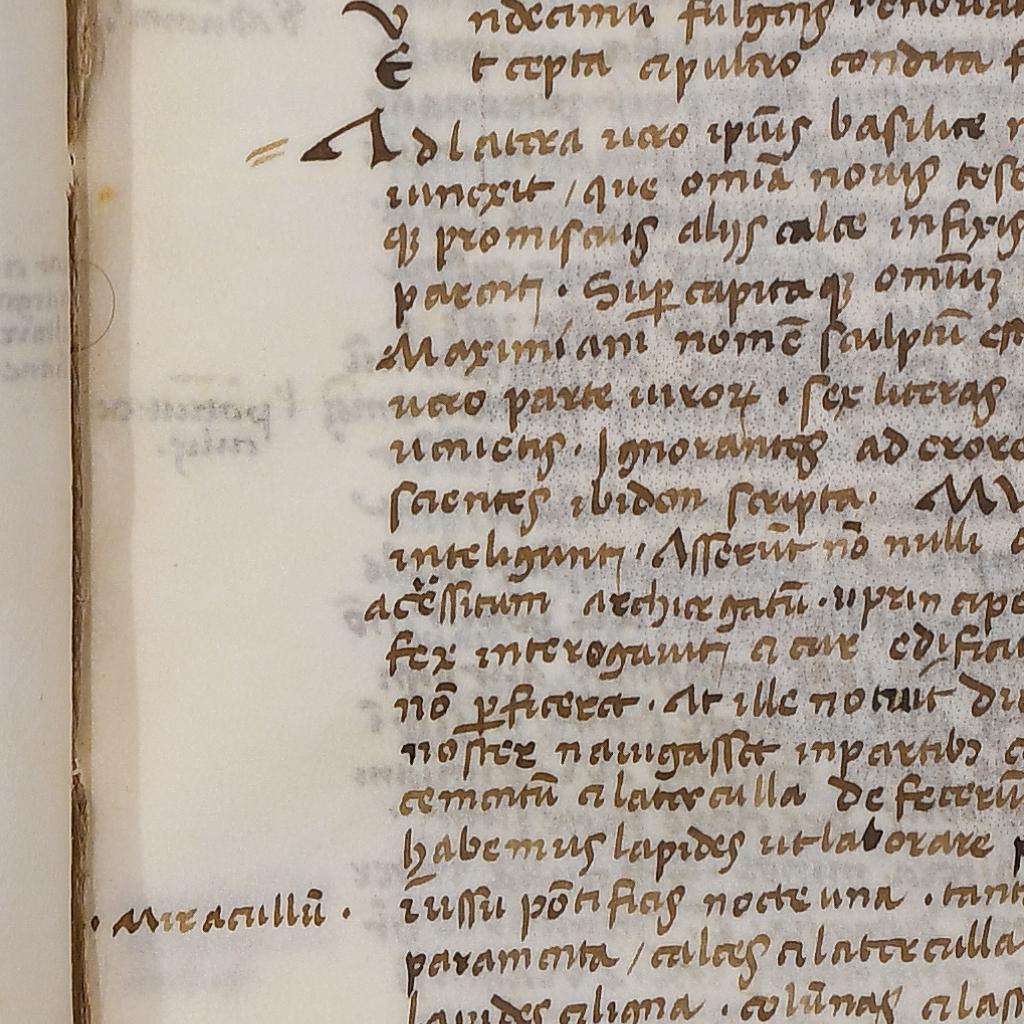 V ndecimū fulgens renouat
E t cepta ei pulcro condita f
Ad latera uero ipīus basilice
iunexit / que omīa nouis tese
q3 promiscuis alijs calce infixis
parent; . Sup capita q3 omīuz
Maximiani nomē sculptū est
uero parte uiror . sex literas
uenietis . Ignorantes ad erore
scientes ibidem scripta . MV
inteligunt; . Asserūt nō nulli
acessitum archiergatū . u prin cipe
fex interogauit; ei cur edificiu
nō pficeret . At ille notuit Du
noster nauigasset inpartib3
cementū ei laterculla de fecerū
habemus lapides ut laborare
iussu pōtificis nocte una . tant
. Miracullū .
paramenta / calces ei latterculla
lapides ei ligna . colūnas ei las